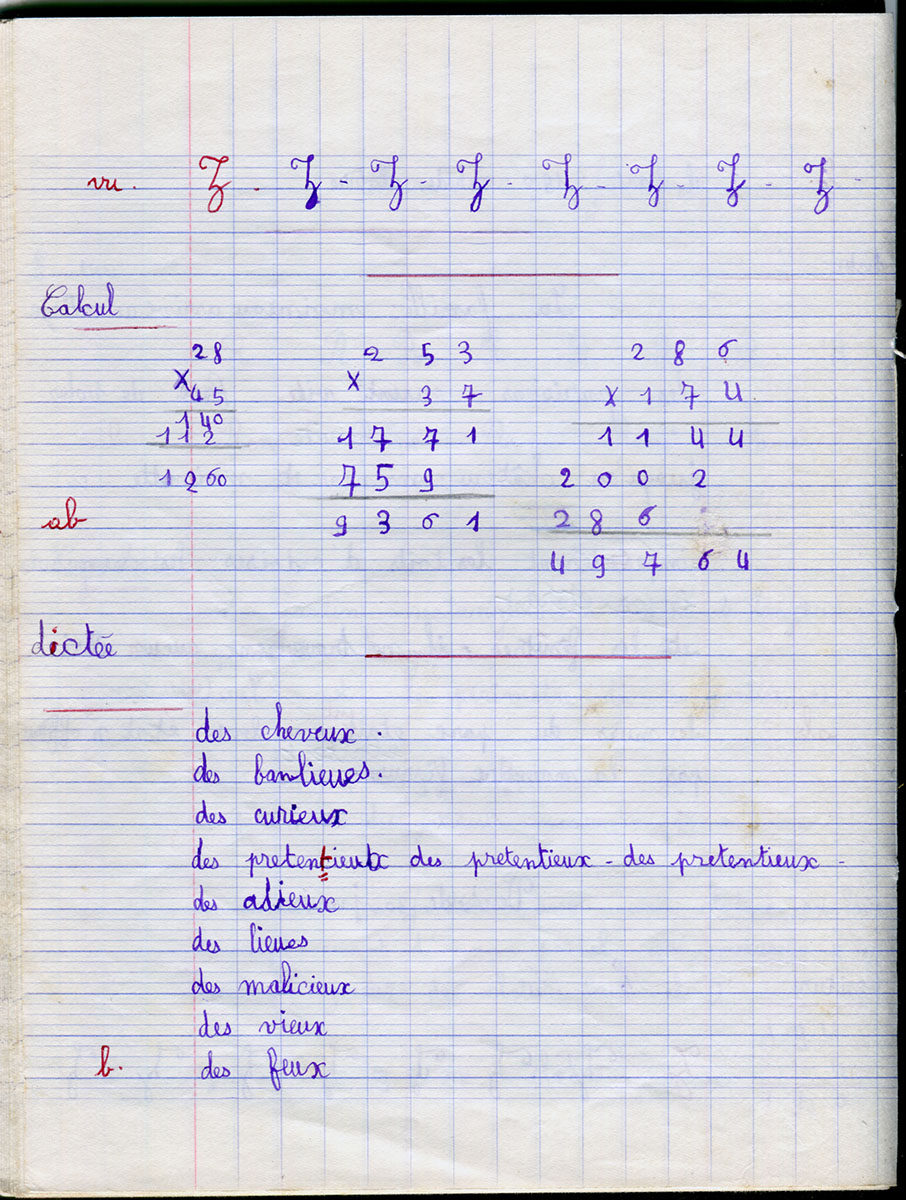 vu. Z - Z - Z - Z - Z - Z - Z - Z -
Calcul
28 2 5 3 2 8 6
x 45 x 3 7 x 1 7 4
140 1 7 7 1 1 1 4 4
112 7 5 9 2 0 0 2
1260 9 3 6 1 2 8 6
ab
4 9 7 6 4
dictée
des cheveux .
des banlieues.
des curieux
des pretentieux des pretentieux - des pretentieux -
des adieux
des lieues
des malicieux
des vieux
b. des feux